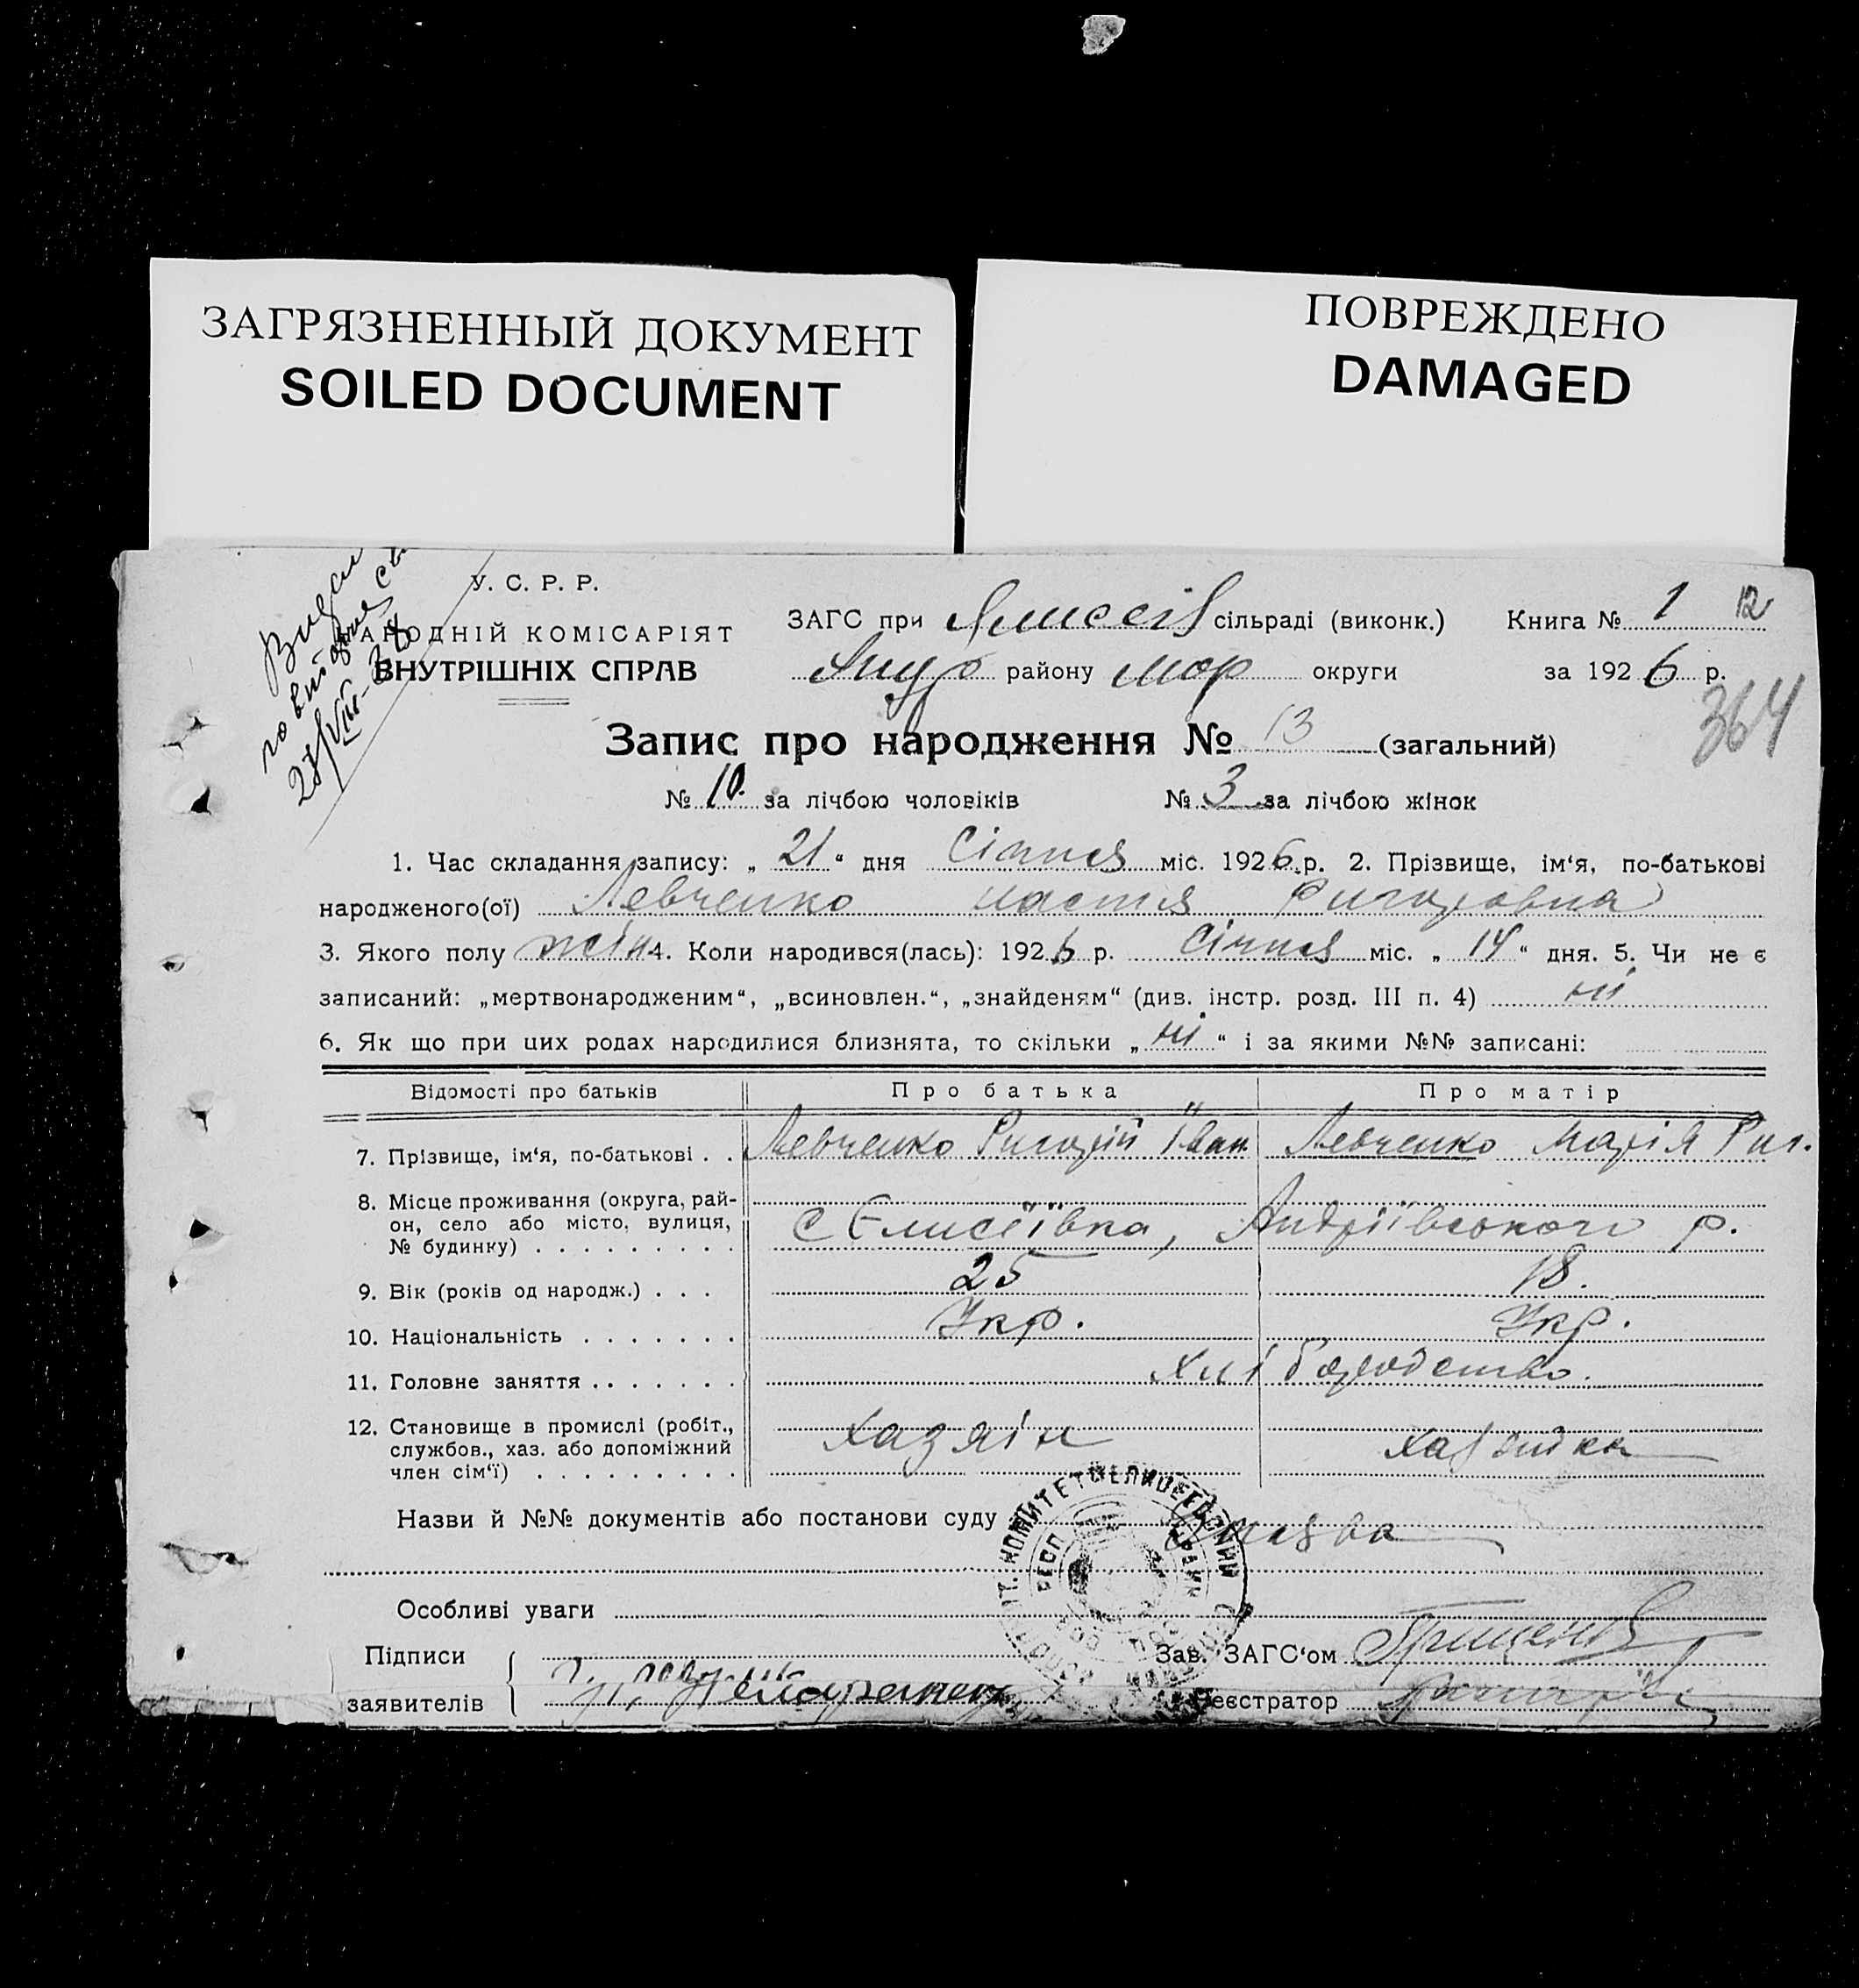 ЗАГРЯЗНЕННЫЙ ДОКУМЕНТ
SOILED DOCUMENT
ПОВРЕЖДЕНО
DAMAGED
У. С. Р. Р.
НАРОДНІЙ КОМІСАРІЯТ
ВНУТРІШНІХ СПРАВ
ЗАГС при сільраді (виконк.) Книга № 1 12
району Мор округи за 1926 р.
364
Запис про народження № 13 (загальний)
№ 10. за лічбою чоловіків № 3 за лічбою жінок
1. Час складання запису: „ 21 “ дня Січня міс. 1926 р. 2. Прізвище, ім‘я, по-батькові
народженого(ої) Левченко Настя Ригоровна
3. Якого полу жін 4. Коли народився(лась): 1926 р. Січня міс. „ 14 “ дня. 5. Чи не є
записаний: „мертвонародженим“, „всиновлен.“, „знайденям“ (див. інстр. розд. III п. 4) ні
6. Як що при цих родах народилися близнята, то скільки „ ні “ і за якими №№ записані:
Відомості про батьків Про батька Про матір
7. Прізвище, ім‘я, по-батькові . . Левченко Ригорій Іван. Левченко Марія Риг.
8. Місце проживання (округа, рай-
он, село або місто, вулиця,
№ будинку) . . . . . . . . . с Єлисеївка, Андріївського р.
9. Вік (років од народж.) . . . 25 18.
10. Національність . . . . . . . Укр. Укр.
11. Головне заняття . . . . . . . Хліборобство.
12. Становище в промислі (робіт.,
службов., хаз. або допоміжний
член сім‘ї) . . . . . . . . . Хазяїн Хазяйка
Назви й №№ документів або постанови суду Заява
Особливі уваги
Підписи
заявителів
Зав. ЗАГС‘ом
Реєстратор